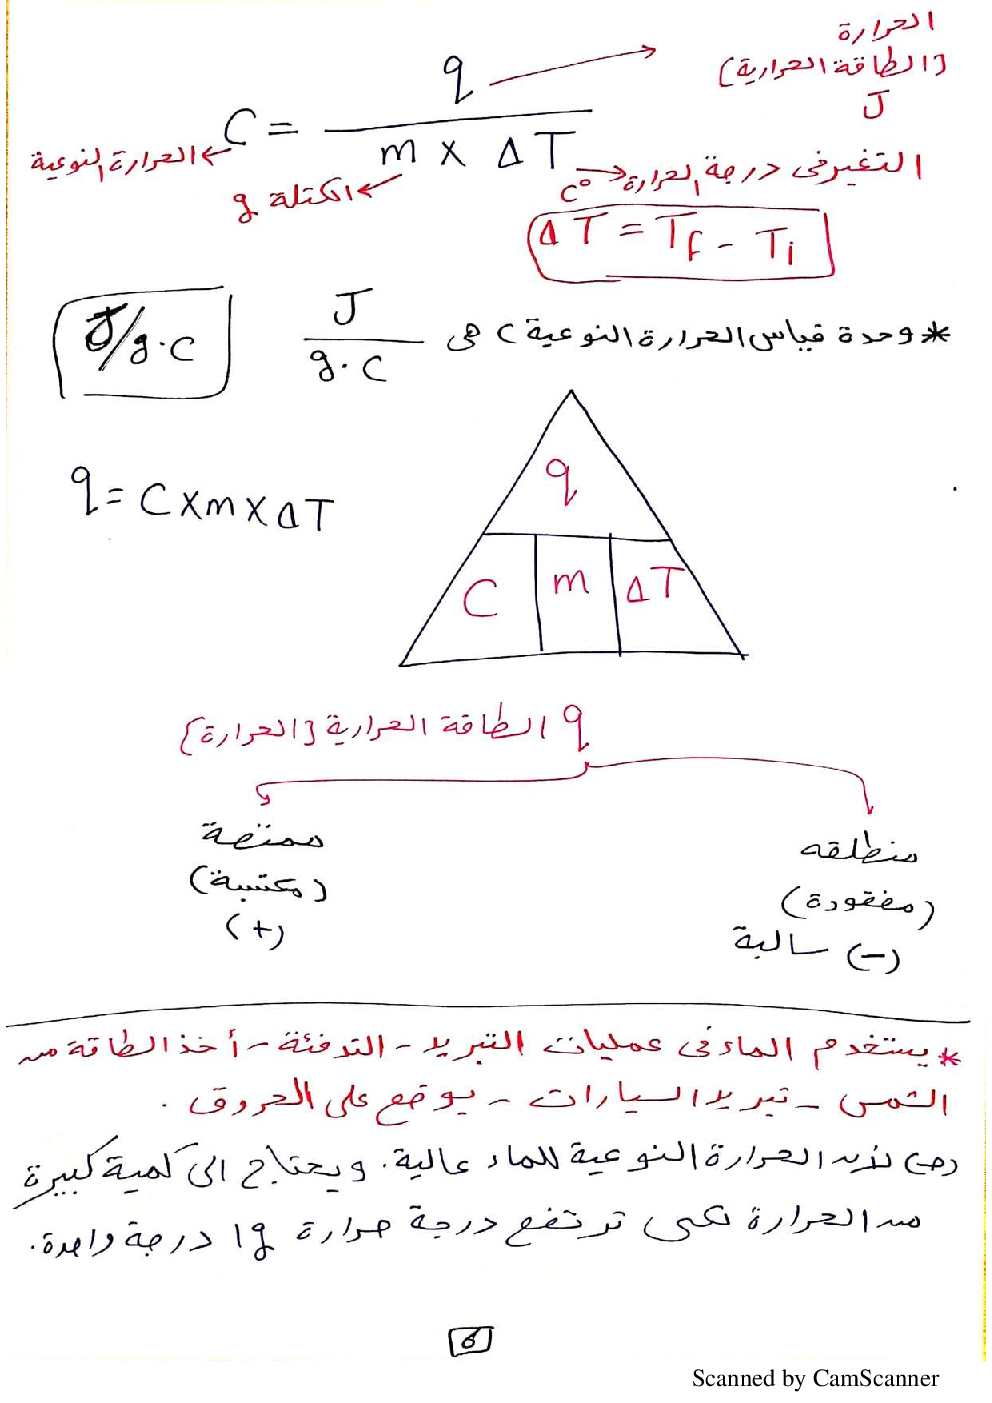 الحرارة
(الطاقة الحرارية)
J
C = q / m x ΔT
الحرارة النوعية
الكتلة g
التغير فى درجة الحرارة C°
ΔT = Tf - Ti
* وحدة قياس الحرارة النوعية C هى J / g.C
J/g.c
q = C x m x ΔT
q
C m ΔT
q الطاقة الحرارية [الحرارة]
منطلقه
(مفقودة)
(-) سالبة
ممتصة
(مكتسبة)
(+)
* يستخدم الماء فى عمليات التبريد - التدفئة - أخذ الطاقة من
الشمس - تبريد السيارات - يوضع على الحروق .
(جـ) لأن الحرارة النوعية للماء عالية. ويحتاج الى كمية كبيرة
من الحرارة لكى ترتفع درجة حرارة 1g درجة واحدة.
6
Scanned by CamScanner